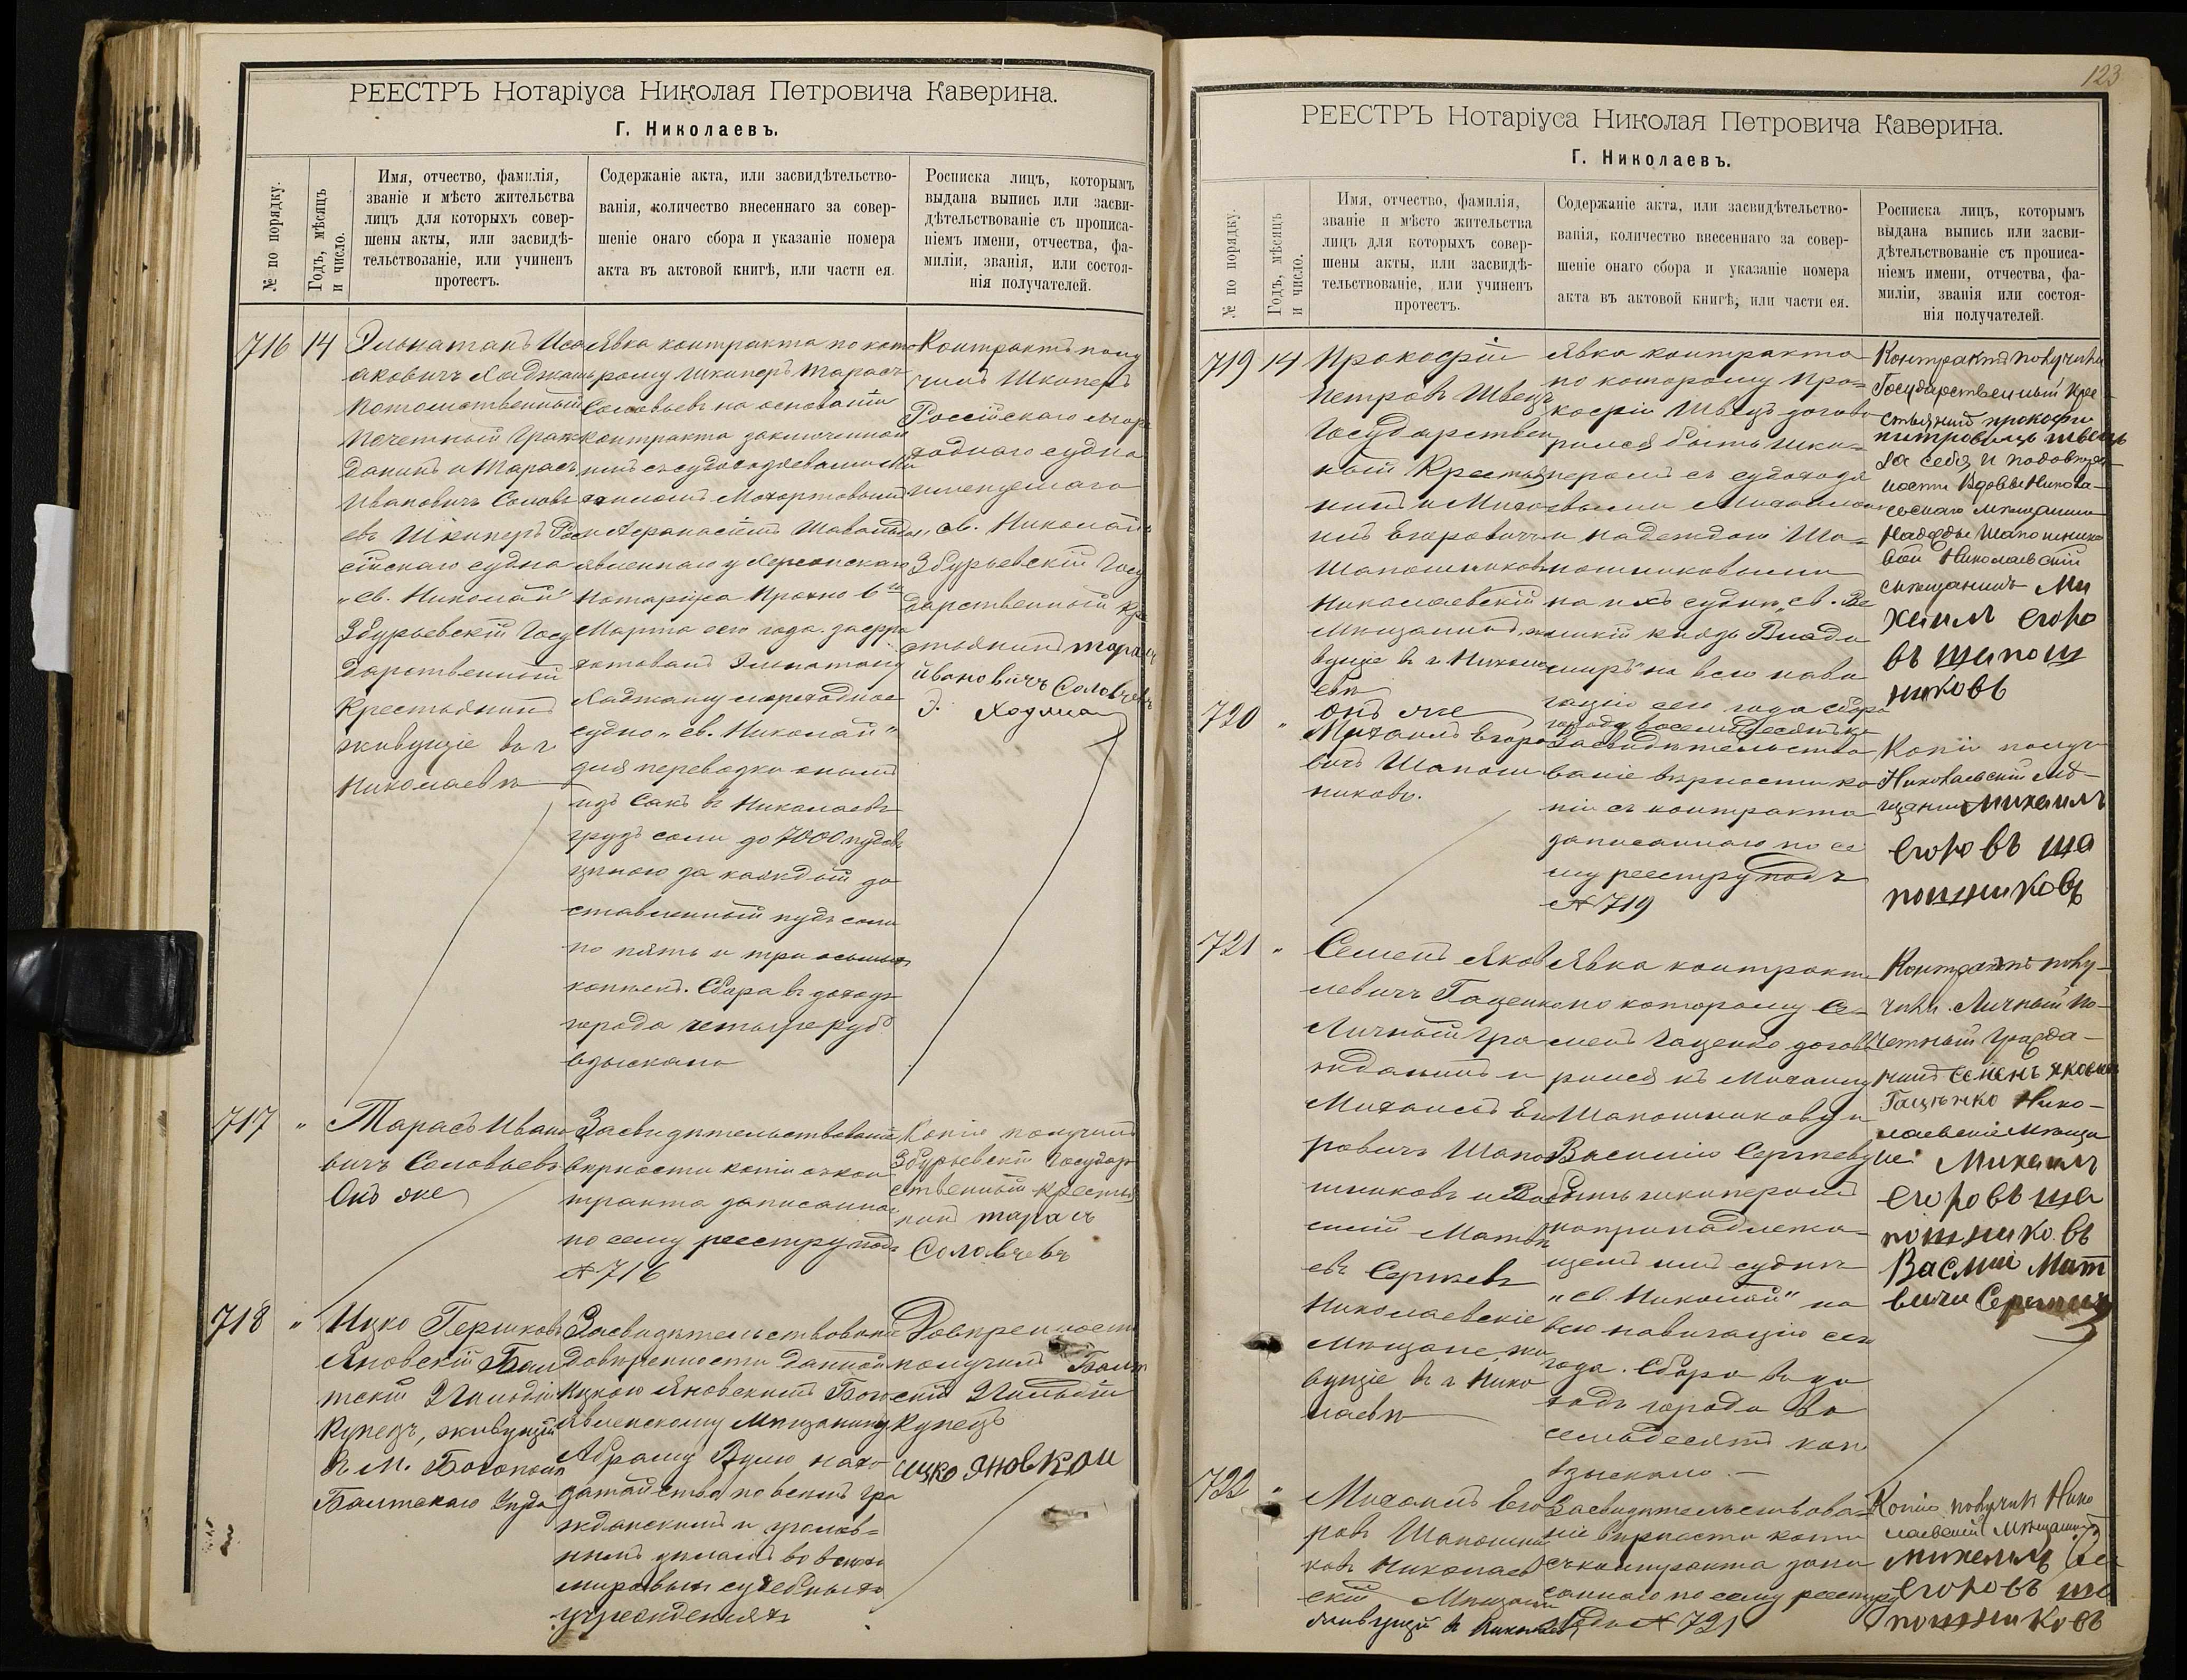 РЕЕСТРЪ Нотаріуса Николая Петровича Каверина.
Г. Николаевъ.
№ по порядку.
Годъ, мѣсяцъ
и число.
Имя, отчество, фамилія,
званіе и мѣсто жительства
лицъ для которыхъ совер-
шены акты, или засвидѣ-
тельствованіе, или учиненъ
протестъ.
Содержаніе акта, или засвидѣтельство-
ванія, количество внесеннаго за совер-
шеніе онаго сбора и указаніе номера
акта въ актовой книгѣ, или части ея.
Росписка лицъ, которымъ
выдана выпись или засви-
дѣтельствованіе съ прописа-
ніемъ имени, отчества, фа-
миліи, званія, или состоя-
нія получателей.
716
14
Эльнатанъ Иса
аковичъ Хаджи
Потомственный
Почетный Граж
данинъ и Тарасъ
Ивановичъ Соловь
евъ Шкиперъ Рос
сійскаго судна
„Св. Николай"
Збурьевскій Госу
дарственный
Крестьянинъ
живущіе въ г.
Николаевѣ
Явка контракта по кото
рому шкиперъ Тарасъ
Соловьевъ на основаніи
контракта заключенна
го съ судохозяевами
и Афанасіемъ
явленнаго у Херсонскаго
Нотаріуса 6го
Марта сего года зафрах
товалъ Эльнатану
мореходное
судно „Св. Николай"
для перевозки онымъ
изъ Сакъ въ Николаевъ
грузъ соли до 7000 пудовъ
цѣною за каждый до
ставленный пудъ соли
по пять и три осьмыхъ
копѣекъ. Сбора въ доходъ
города четыре руб.
взыскано
Контрактъ полу
чилъ Шкиперъ
Россійскаго море
ходнаго судна
именуемаго
„Св. Николай"
Збурьевскій Госу
дарственный Кре
стьянинъ тарасъ
ивановичъ Соловьевъ
717
"
Тарасъ Ивано
вичъ Соловьевъ
Онъ же
Засвидѣтельствованіе
вѣрности копіи съ кон
тракта записанна
по сему реестру подъ
№ 716
Копію получилъ
Збурьевскій Государ
ственный Крестья
нинъ тарасъ
Соловьевъ
718
"
Ицко Гершковъ
Яновскій Бал
тскій 2 Гильдіи
Купецъ, живущій
въ М. Богополѣ
Балтскаго Уѣзда
Засвидѣтельствованіе
довѣренности данной
Ицкою Яновскимъ Бого
явленскому Мѣщанину
Абраму на хо
датайство по всѣмъ гра
жданскимъ и уголов=
нымъ дѣламъ во всѣхъ
мировыхъ судебныхъ
учрежденіяхъ
Довѣренность
получилъ Балт
скій 2 Гильдіи
Купецъ
ицко яновскои
123
РЕЕСТРЪ Нотаріуса Николая Петровича Каверина.
Г. Николаевъ.
№ по порядку.
Годъ, мѣсяцъ
и число.
Имя, отчество, фамилія,
званіе и мѣсто жительства
лицъ для которыхъ совер-
шены акты, или засвидѣ-
тельствованіе, или учиненъ
протестъ.
Содержаніе акта, или засвидѣтельство-
ванія, количество внесеннаго за совер-
шеніе онаго сбора и указаніе номера
акта въ актовой книгѣ, или части ея.
Росписка лицъ, которымъ
выдана выпись или засви-
дѣтельствованіе съ прописа-
ніемъ имени, отчества, фа-
миліи, званія или состоя-
нія получателей.
719
14
Прокофій
Петровъ Швецъ
Государствен
ный Крестья
нинъ и Миха
илъ Егоровичъ
Шапошниковъ
Николаевскій
Мѣщанинъ, жи
вущіе въ г. Никола
евѣ
Явка контракта
по которому Про=
кофій Швецъ догово
рился быть шки=
перомъ съ судохозя
евами Михаиломъ
и Надеждою Ша=
пошниковыми
на ихъ суднѣ „Св. Ве
ликій князь Влади
миръ" на всю нави
гацію сего года Сбора
города восемьдесятъ ко
Контрактъ получили
Государственный Кре
стьянинъ прокофи
питровичъ швецъ
за себя и по довѣрен
ности Вдовы Никола-
евскаго мѣщанина
Надежды Шапошнико
вой Николаевскій
мѣщанинъ Ми
хаилъ егоро
въ шапош
никовъ
720
"
онъ же
Михаилъ Егоро
вичъ Шапош
никовъ.
Засвидѣтельство
ваніе вѣрности ко
піи съ контракта
записаннаго по се
му реестру подъ
№ 719
Копію получ
Николаевскій мѣ-
щанинъ Михаилъ
егоровъ ша
пошниковъ
721
"
Семенъ Яков
левичъ Гаценко
Личный Гра
жданинъ и
Михаилъ Его
ровичъ Шапо
шниковъ и Ва
силій Матвѣ
евъ Сергѣевъ
Николаевскіе
Мѣщане, жи
вущіе въ г. Нико
лаевѣ
Явка контракта
по которому Се-
менъ Гаценко догово
рился къ Михаилу
Шапошникову и
Василію Сергѣеву
быть шкиперомъ
на принадлежа-
щемъ имъ суднѣ
„Св. Николай" на
всю навигацію сего
года. Сбора въ до
ходъ города во
семьдесятъ коп
взыскано.—
Контрактъ полу-
чили. Личный По-
четный Гражда-
нинъ Семенъ яковлев
Гаценко Нико-
лаевскіе Мѣща
не Михаилъ
егоровъ ша
пошниковъ
Васили Мат
вичи Сергѣевъ
722
"
Михаилъ Его
ровъ Шапошни
ковъ Николаев
скій Мѣщанин
живущій въ Николаевѣ
Засвидѣтельствова=
ніе вѣрности копіи
съ контракта запи
саннаго по сему реестру
подъ № 721
Копію получилъ Нико
лаевскій Мѣщанинъ
михаилъ
егоровъ ша
пошниковъ